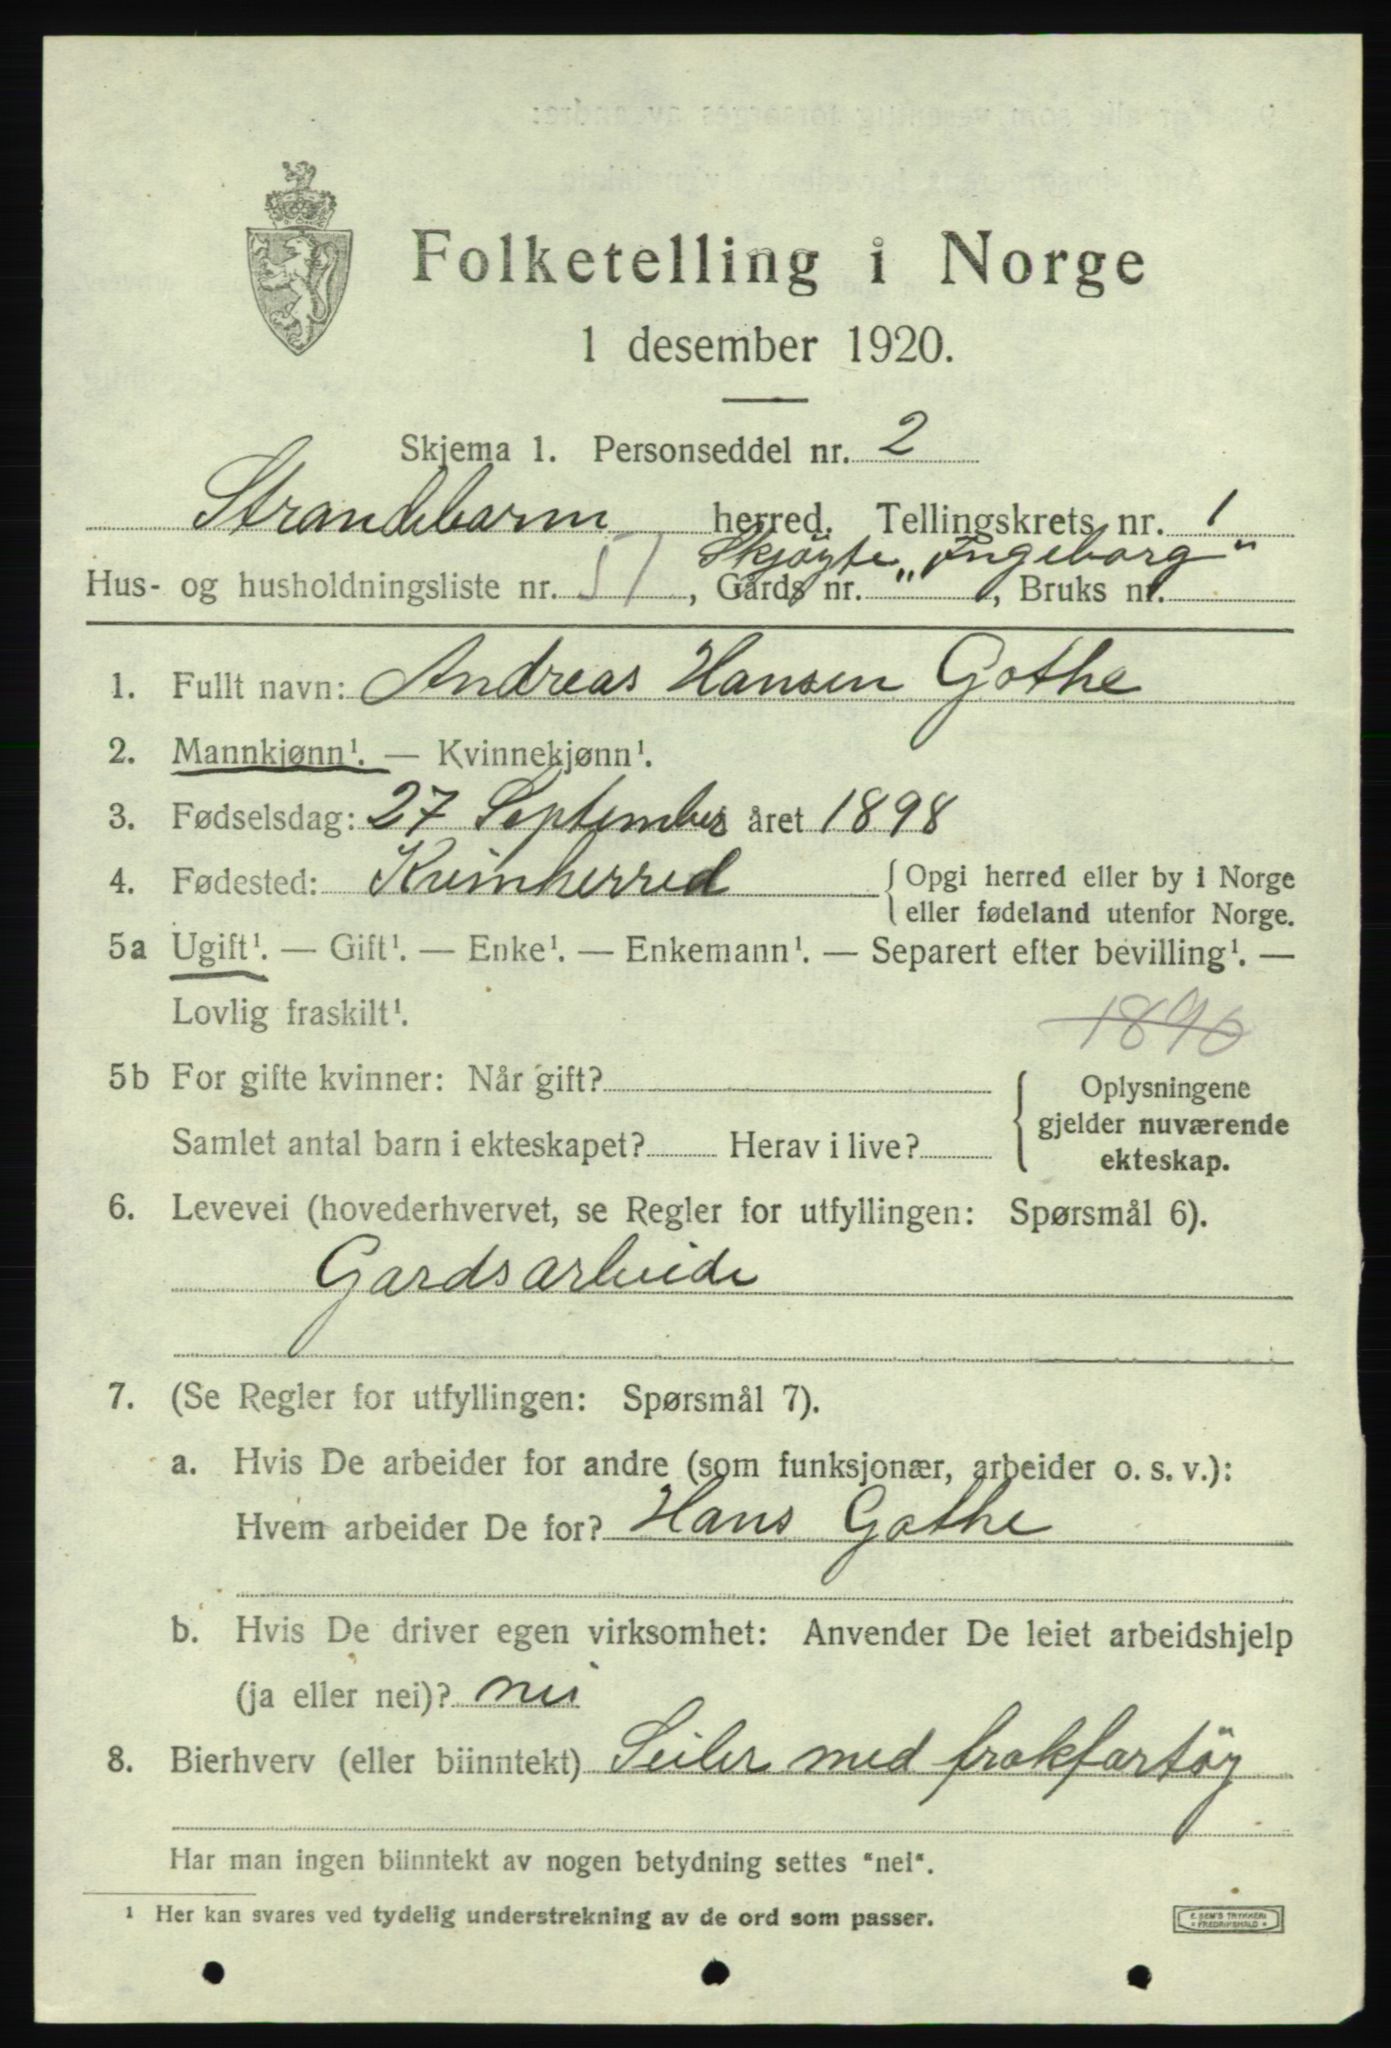 Folketelling i Norge
1 desember 1920.
Skjema 1. Personseddel nr. 2
Strandebarm herred. Tellingskrets nr. 1
Skjøyte „Ingeborg“
Hus- og husholdningsliste nr. 57, Gårds nr. , Bruks nr.
1. Fullt navn: Andreas Hansen Gothe
2. Mannkjønn¹. — Kvinnekjønn¹.
3. Fødselsdag: 27 September året 1898
4. Fødested: Kvinherred {Opgi herred eller by i Norge
eller fødeland utenfor Norge.
5a Ugift¹. — Gift¹. — Enke¹. — Enkemann¹. — Separert efter bevilling¹. —
Lovlig fraskilt¹.
5b For gifte kvinner: Når gift? { Oplysningene
gjelder nuværende
Samlet antal barn i ekteskapet? Herav i live?
ekteskap.
6. Levevei (hovederhvervet, se Regler for utfyllingen: Spørsmål 6).
Gardsarbeide
7. (Se Regler for utfyllingen: Spørsmål 7).
a. Hvis De arbeider for andre (som funksjonær, arbeider o. s. v.):
Hvem arbeider De for? Hans Gothe
b. Hvis De driver egen virksomhet: Anvender De leiet arbeidshjelp
(ja eller nei)? nei
8. Bierhverv (eller biinntekt) Seiler med fraktfartöy
Har man ingen biinntekt av nogen betydning settes "nei".
¹ Her kan svares ved tydelig understrekning av de ord som passer.
E. SEM'S TRYKKERI
FREDRIKSHALD